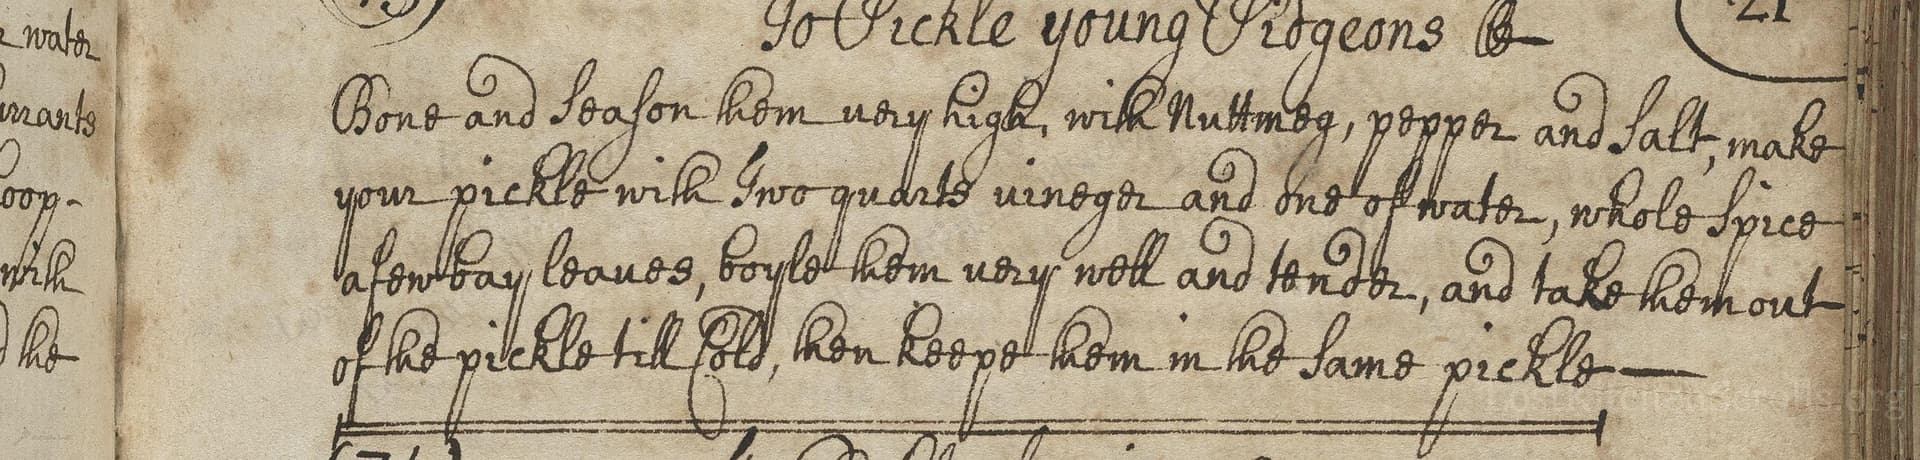 To Pickle young Pidgeons
21
Bone and Season them very high, with Nuttmeg, pepper and Salt, make
your pickle with Two quarts vineger and one of water, whole Spice
a few bay leaves, boyle them very well and tender, and take them out
of the pickle till Cold, then keepe them in the Same pickle —
water
urrants
oop-
with
the
LostKitchenScrolls.org